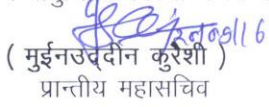 ( मुईनउद्दीन कुरैशी )
प्रान्तीय महासचिव